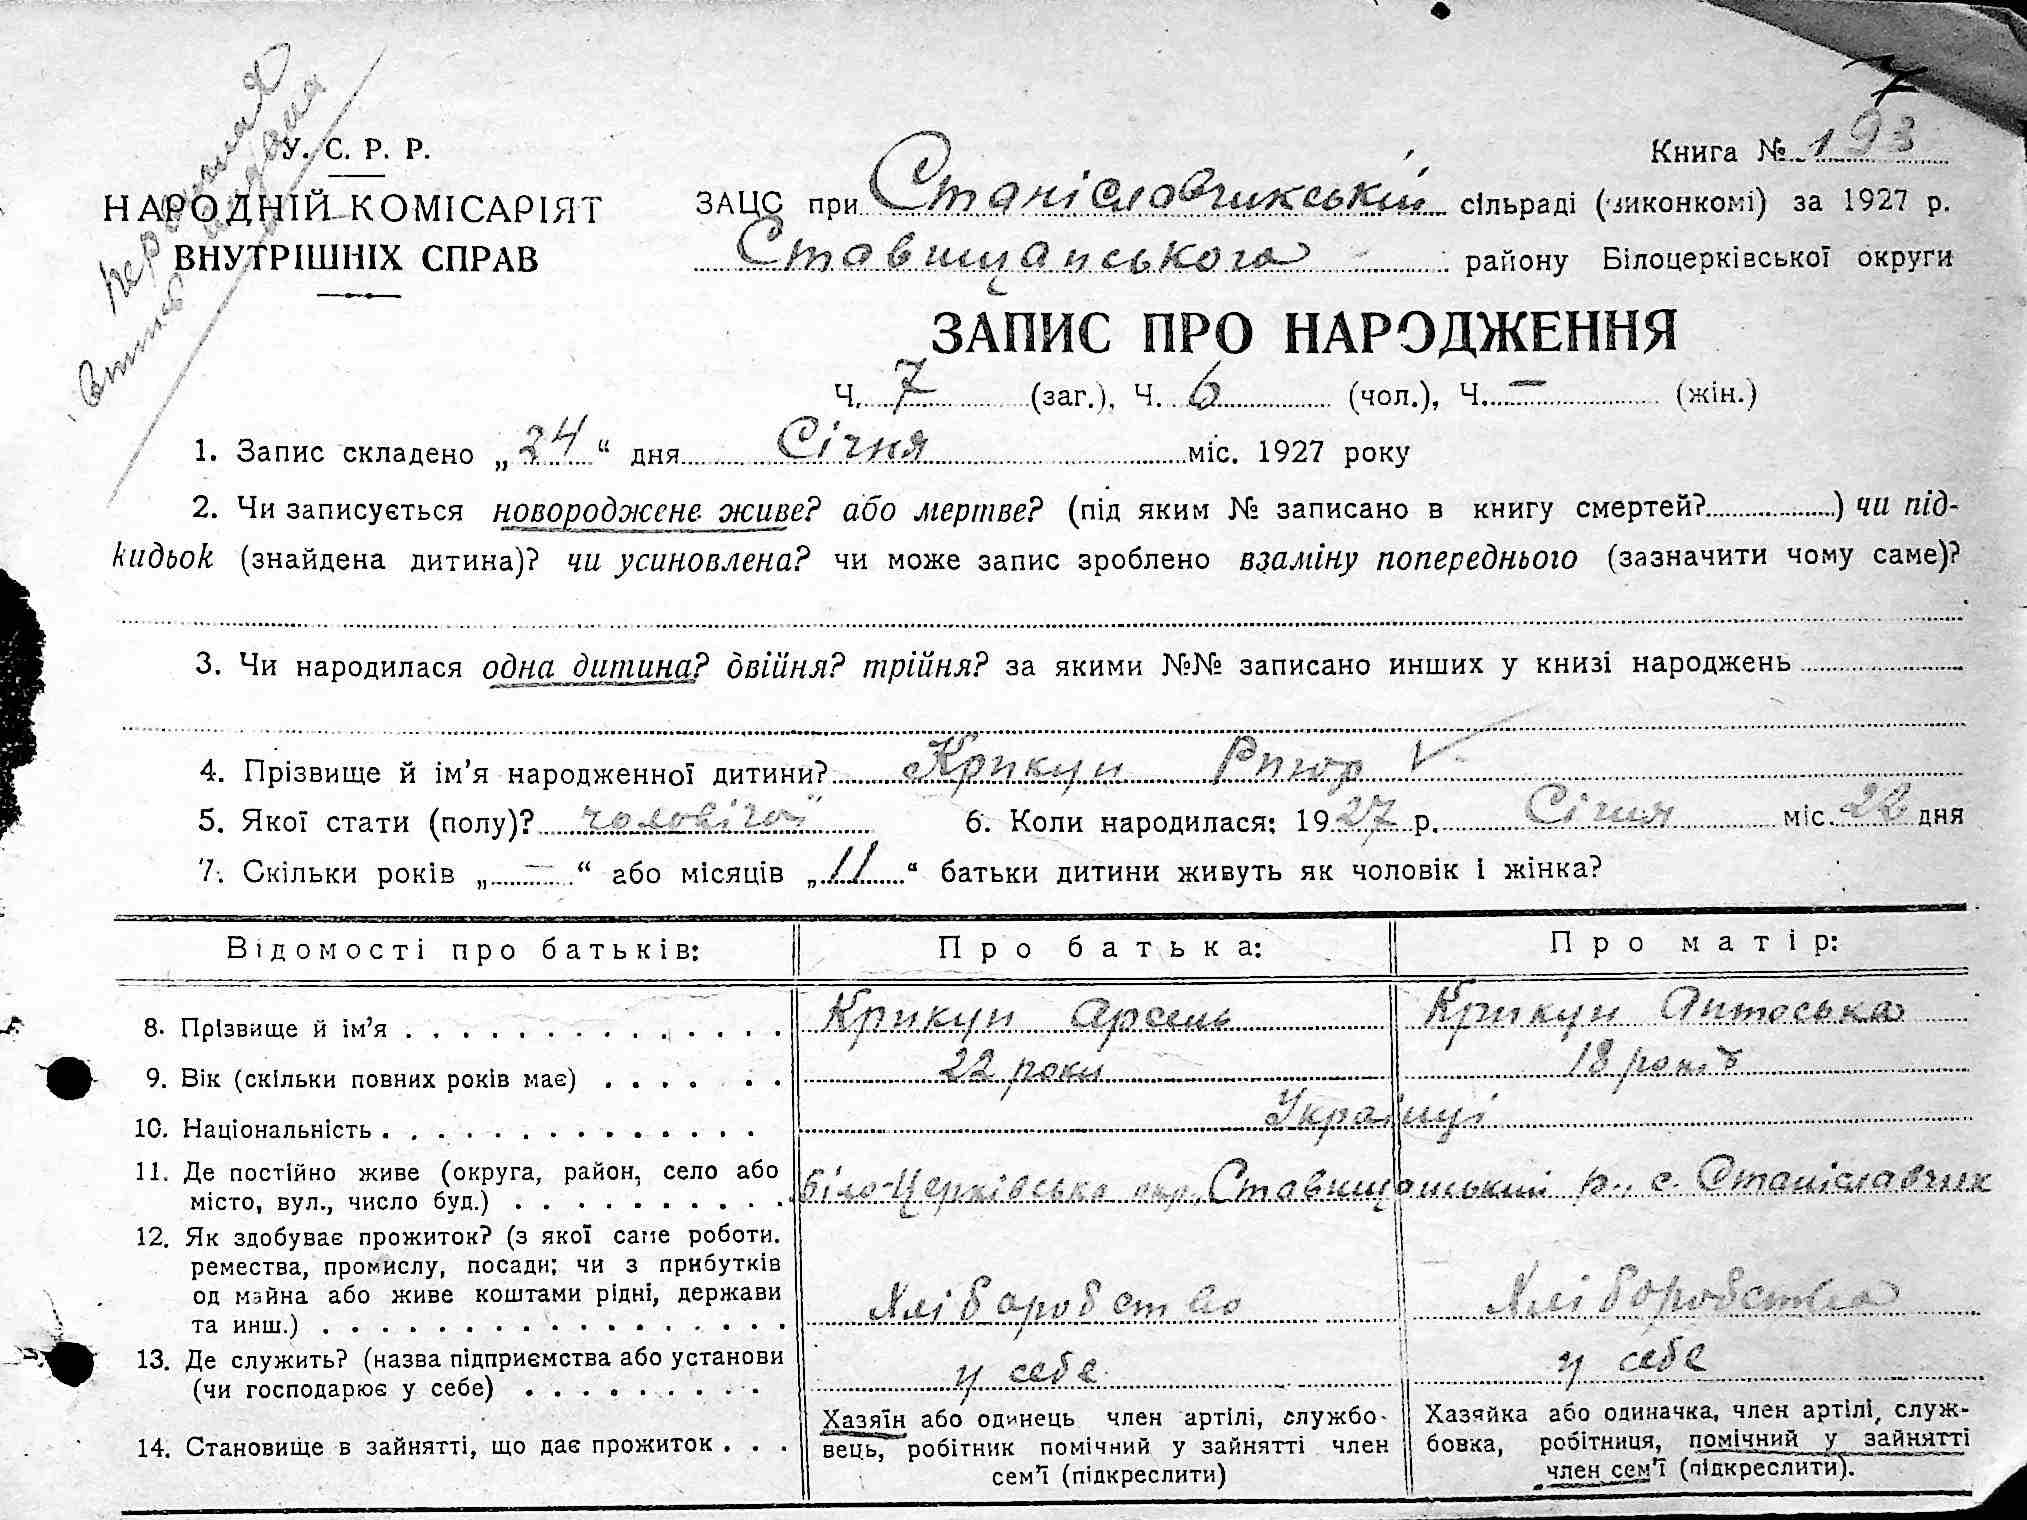 7
У. С. Р. Р.
НАРОДНІЙ КОМІСАРІЯТ
ВНУТРІШНІХ СПРАВ
Книга № 193
ЗАЦС при Станіславчикській сільраді (виконкомі) за 1927 р.
Ставищанського району Білоцерківської округи
ЗАПИС ПРО НАРОДЖЕННЯ
Ч. 7 (заг.), Ч. 6 (чол.), Ч. — (жін.)
1. Запис складено „24“ дня Січня міс. 1927 року
2. Чи записується новороджене живе? або мертве? (під яким № записано в книгу смертей?) чи під-
кидьок (знайдена дитина)? чи усиновлена? чи може запис зроблено взаміну попереднього (зазначити чому саме)?
3. Чи народилася одна дитина? двійня? трійня? за якими №№ записано инших у книзі народжень
4. Прізвище й ім’я народженної дитини? Крикун
5. Якої стати (полу)? чоловічої 6. Коли народилася: 1927 р. Січня міс. 22 дня
7. Скільки років „—“ або місяців „11“ батьки дитини живуть як чоловік і жінка?
Відомості про батьків: Про батька: Про матір:
8. Прізвище й ім’я Крикун Арсень Крикун Антоська
9. Вік (скільки повних років має) 22 роки 18 років
10. Національність Українці
11. Де постійно живе (округа, район, село або
місто, вул., число буд.) Біло-Церківська окр., Ставищанський р., с. Станіславчик
12. Як здобуває прожиток? (з якої саме роботи.
ремества, промислу, посади; чи з прибутків
од майна або живе коштами рідні, держави
та инш.) Хліборобство Хліборобство
13. Де служить? (назва підприємства або установи
(чи господарює у себе) у себе у себе
14. Становище в зайнятті, що дає прожиток
Хазяїн або одинець член артілі, службо-
вець, робітник помічний у зайнятті член
сем’ї (підкреслити)
Хазяйка або одиначка, член артілі, служ-
бовка, робітниця, помічний у зайнятті
член сем’ї (підкреслити).